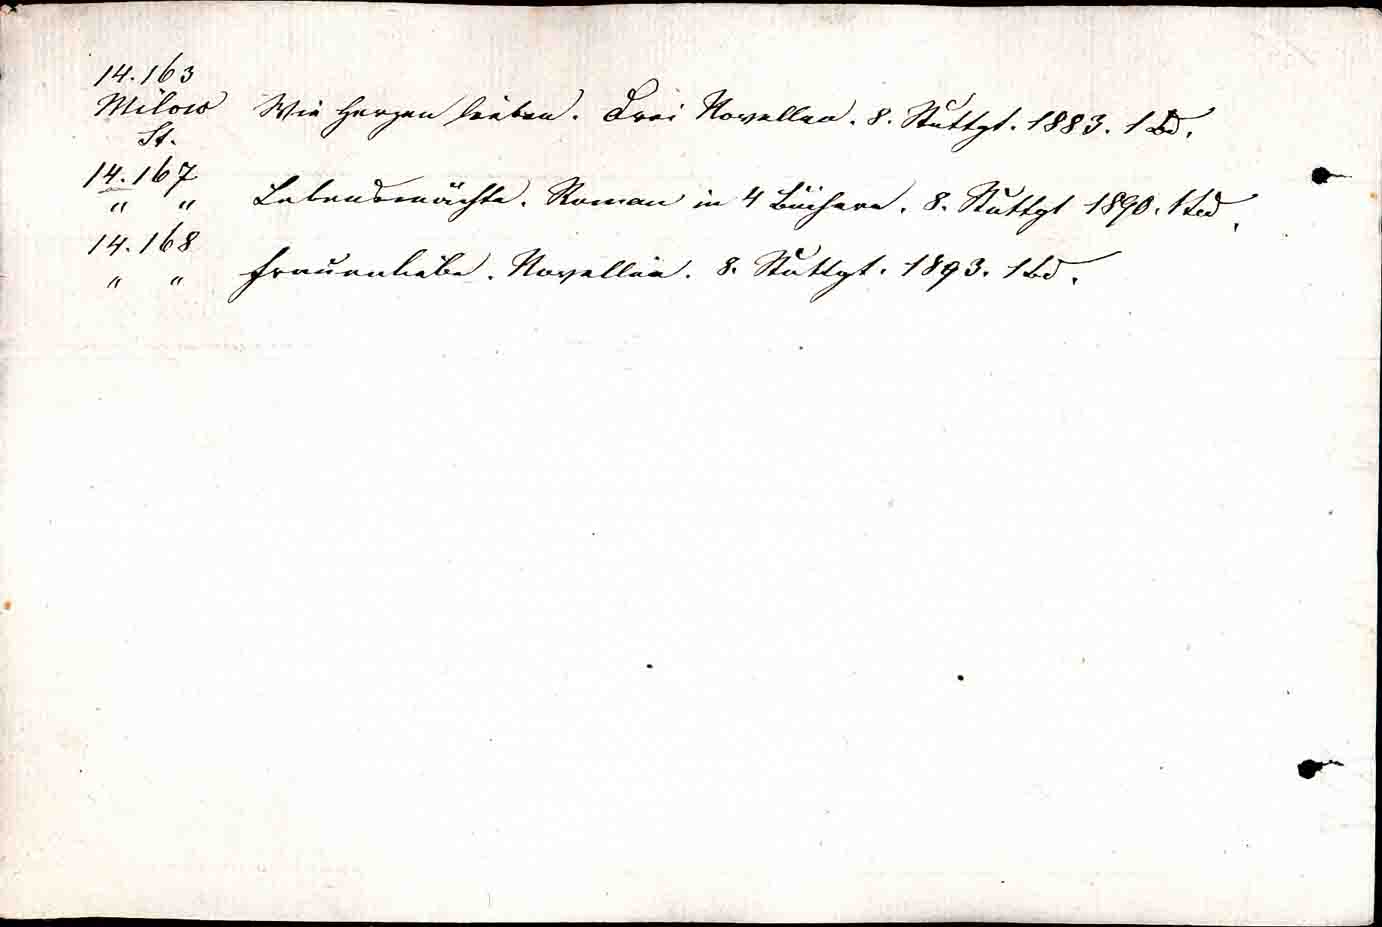 14.163
Milow Wie Herzen lieben. Drei Novellen. 8. Stuttgt. 1883. 1 Bd.
St.
14.167
" " Lebensmächte. Roman in 4 Büchern. 8. Stuttgt 1890. 1 Bd.
14.168
" " Frauenliebe. Novellen. 8. Stuttgt. 1893. 1 Bd.